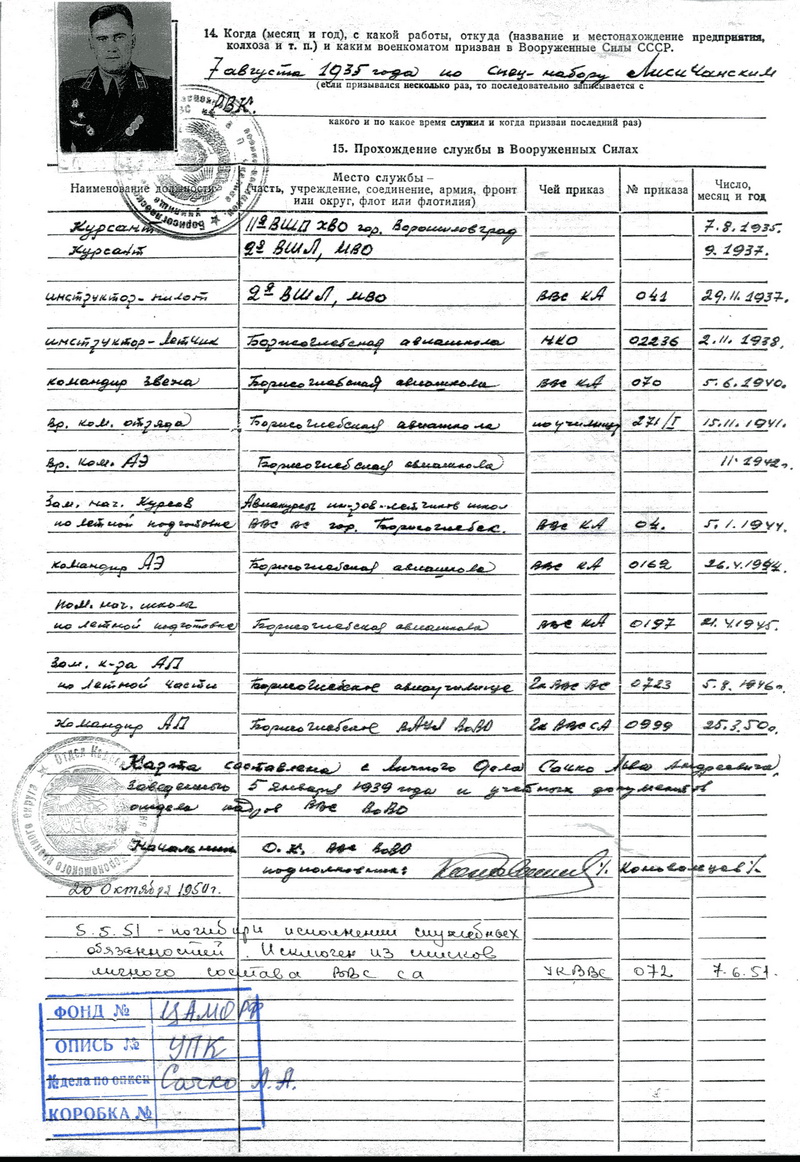 14. Когда (месяц и год), с какой работы, откуда (название и местонахождение предприятия,
колхоза и т. п.) и каким военкоматом призван в Вооруженные Силы СССР.
7 августа 1935 года по спец-набору Лисичанским
(если призывался несколько раз, то последовательно записывается с
РВК.
какого и по какое время служил и когда призван последний раз)
15. Прохождение службы в Вооруженных Силах
Наименование должности Место службы – (часть, учреждение, соединение, армия, фронт или округ, флот или флотилия) Чей приказ № приказа Число, месяц и год
Курсант 11ая ВШП ХВО гор. Ворошиловград 7.8.1935.
Курсант 2ая ВШЛ, МВО 9.1937.
инструктор-пилот 2ая ВШЛ, МВО ВВС КА 041 29.11.1937.
инструктор-летчик Борисоглебская авиашкола НКО 02236 2.11.1938.
командир звена Борисоглебская авиашкола ВВС КА 070 5.6.1940.
Вр. ком. отряда Борисоглебская авиашкола по училищу 271/I 15.11.1941.
Вр. ком. АЭ Борисоглебская авиашкола 11.1942г.
Зам. нач. Курсов Авиакурсы летчиков школ
по летной подготовке ВВС ВС гор. Борисоглебск. ВВС КА 04. 5.1.1944.
командир АЭ Борисоглебская авиашкола ВВС КА 0162 26.4.1944.
Пом. нач. школы
по летной подготовке Борисоглебская авиашкола ВВС КА 0197 21.4.1945.
Зам. к-ра АП
по летной части Борисоглебское авиаучилище Гк ВВС ВС 0723 5.8.1946г.
Командир АП Борисоглебское ВАУЛ ВоВО Гк ВВС СА 0999 25.3.50г.
Карта составлена с личного дела Сачко Льва Андреевича,
заведенного 5 января 1939 года и учетных документов
отдела кадров ВВС ВоВО
Начальник О.К. ВВС ВоВО
подполковник: /Коновальцев/
20 Октября 1950г.
5.5.51 - погиб при исполнении служебных
обязанностей. Исключен из списков
личного состава ВВС СА УКВВС 072 7.6.51.
ФОНД № ЦАМО РФ
ОПИСЬ № УПК
№ дела по описи Сачко Л.А.
КОРОБКА №